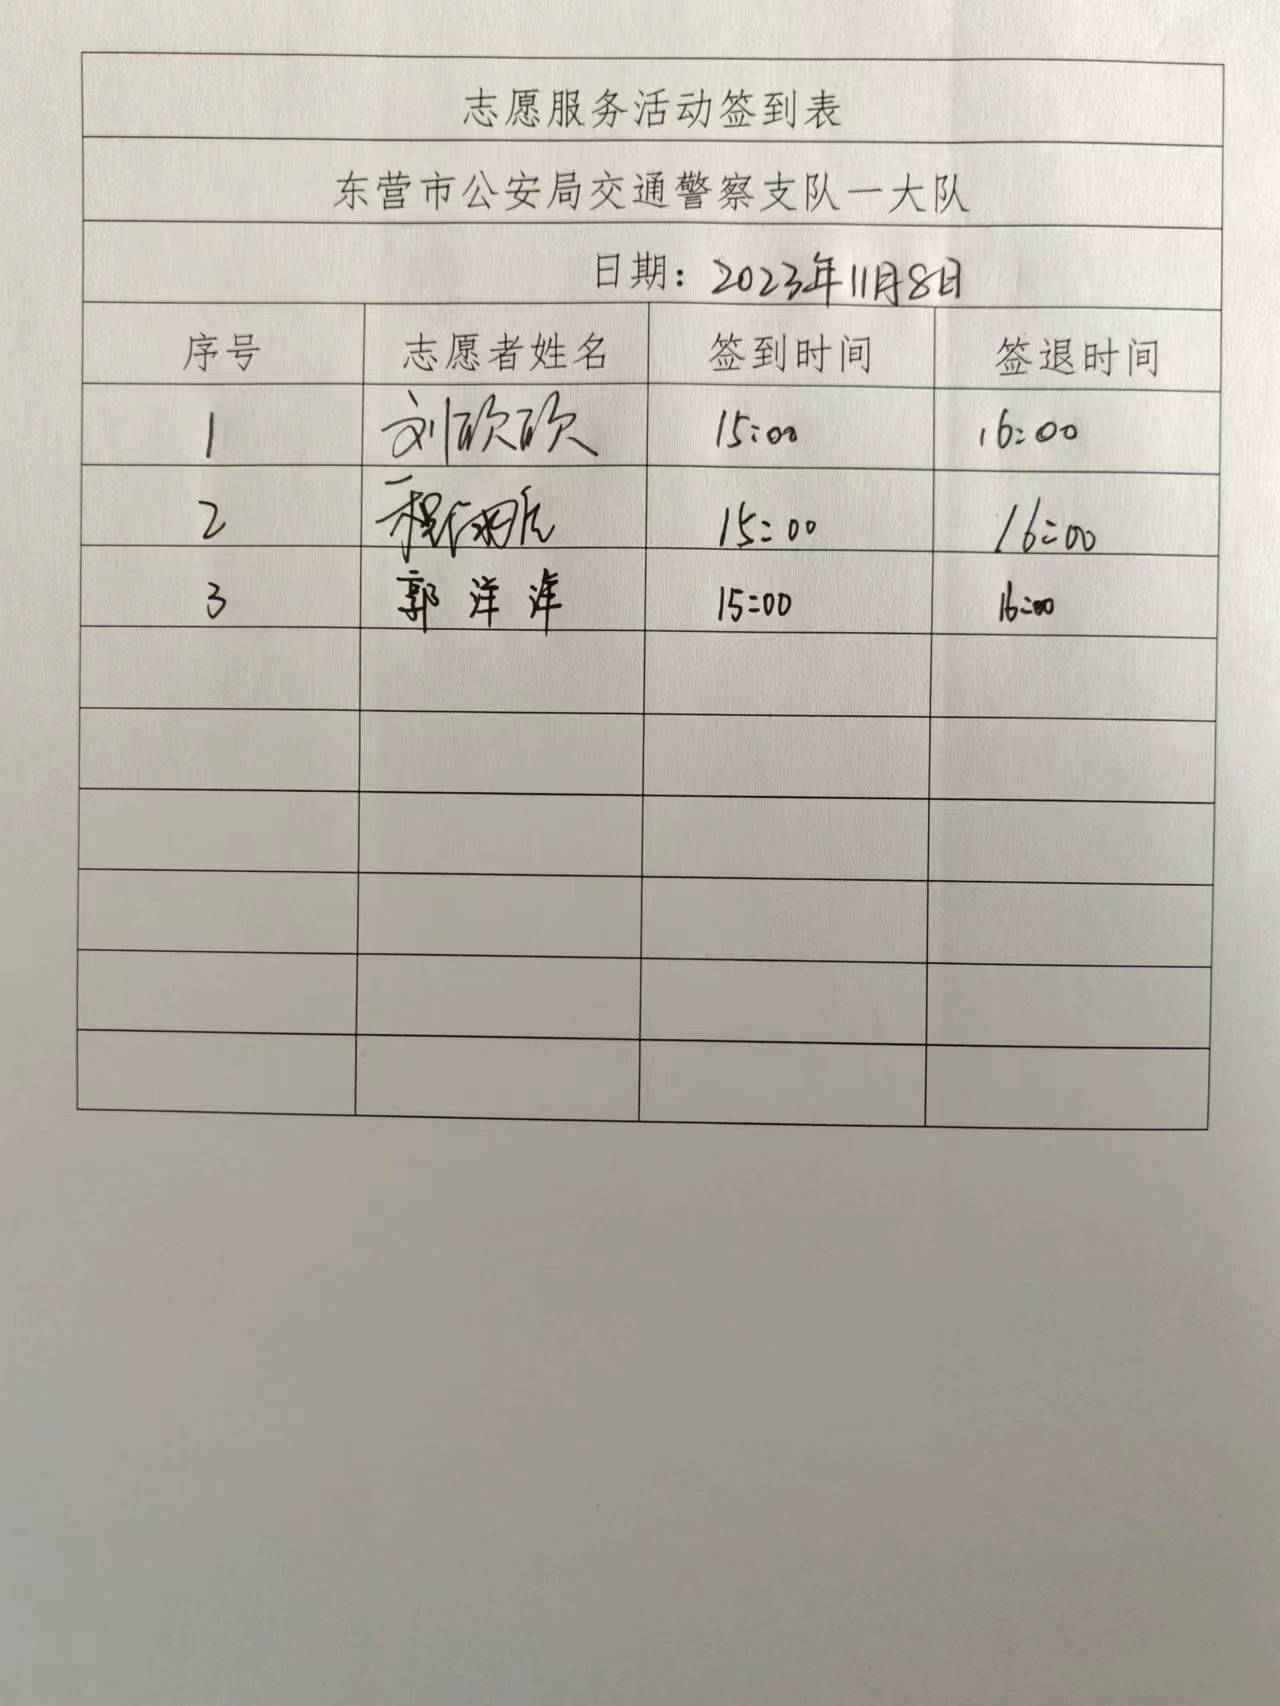 志愿服务活动签到表
东营市公安局交通警察支队一大队
日期：2023年11月8日
序号 志愿者姓名 签到时间 签退时间
1 刘欣欣 15:00 16:00
2 15:00 16:00
3 郭洋洋 15:00 16:00